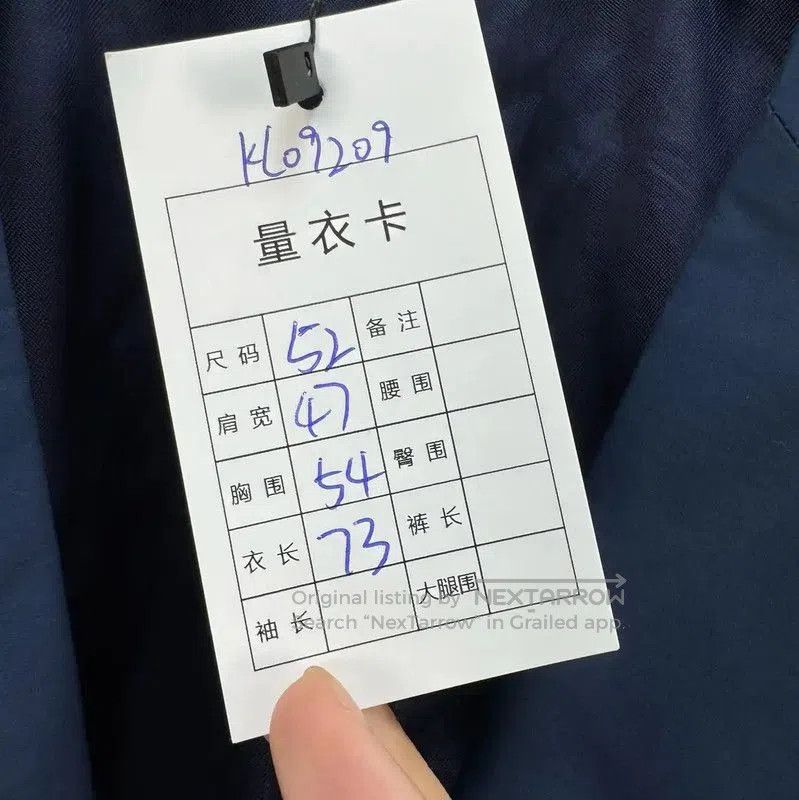 KL09209
量衣卡
尺码 52 备注
肩宽 47 腰围
胸围 54 臀围
衣长 73 裤长
袖长 大腿围
Original listing by NEXTARROW
Search “NexTarrow” in Grailed app.